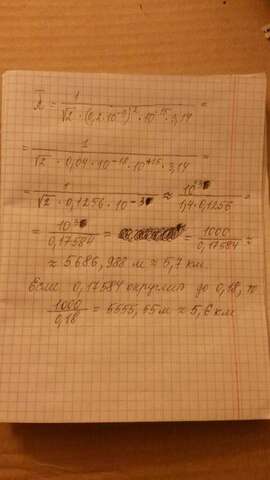 λ̄ = 1 / (√2 · (0,2·10⁻⁹)² · 10¹⁵ · 3,14) =
= 1 / (√2 · 0,04 · 10⁻¹⁸ · 10⁺¹⁵ · 3,14) =
= 1 / (√2 · 0,1256 · 10⁻³) ≈ 10³ / (1,4·0,1256) =
= 10³ / 0,17584 = 1000 / 0,17584 ≈
≈ 5686,988 м ≈ 5,7 км.
Если 0,17584 округлить до 0,18, то
1000 / 0,18 = 5555,55 м ≈ 5,6 км